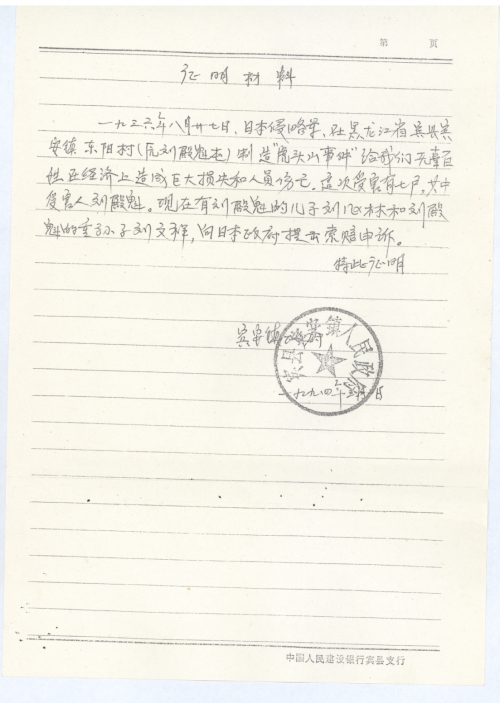 第 页
证明材料
一九三六年八月廿七日,日本侵略军,在黑龙江省宾县宾
安镇东阳村(原刘殿魁屯)制造"虎头山事件"给我们无辜百
姓在经济上造成巨大损失和人员伤亡。这次受害有七户,其中
受害人刘殿魁。现在有刘殿魁的儿子刘 林和刘殿
魁的重孙子刘文祥,向日本政府提出索赔申诉。
特此证明
宾安镇 政府
宾县宾安镇人民政府
一九九四年 月 日
中国人民建设银行宾县支行